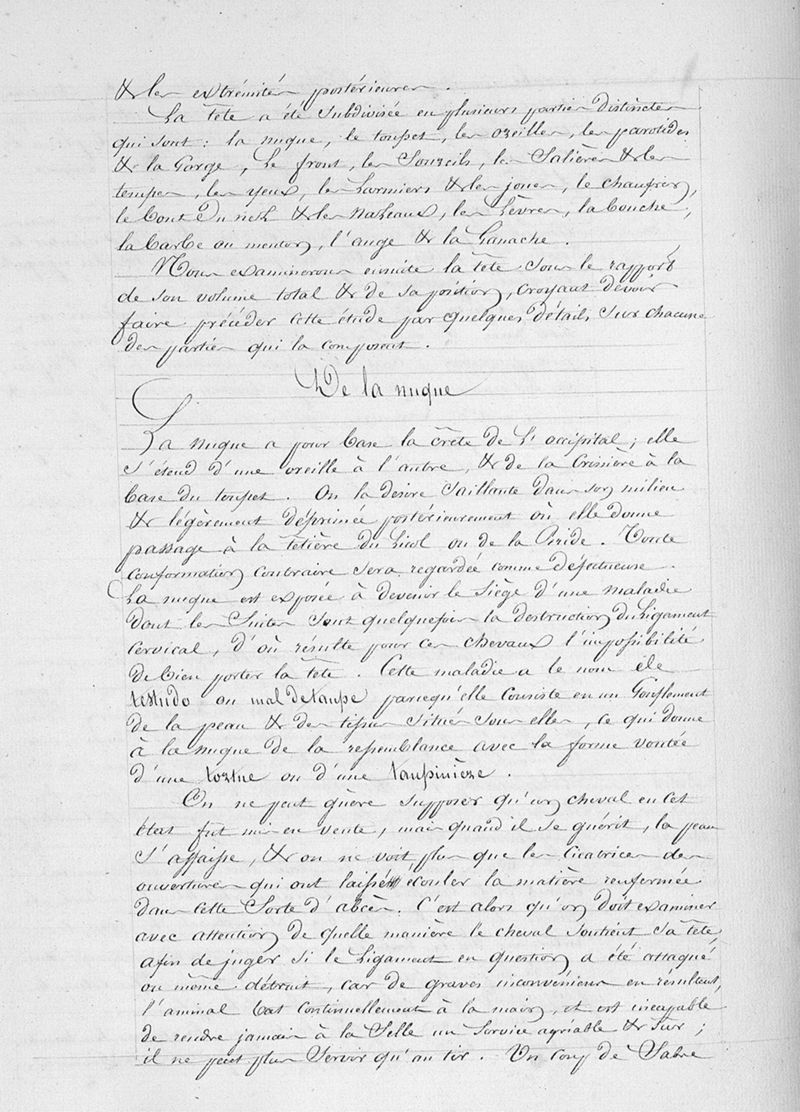 & les extrémités postérieures.
La tête a été subdivisée en plusieurs parties distinctes
qui sont : la nuque, le toupet, les oreilles, les parotides
& la Gorge, Le front, les Sourcils, les Salières & les
tempes, les yeux, les Larmiers & les joues, le chanfrein,
le bout du nez & les Nazeaux, les Lèvres, la bouche,
la barbe ou menton, l'auge & la Ganache.
Nous examinerons ensuite la tête sous le rapport
de son volume total & de sa position, croyant devoir
faire précéder cette étude par quelques détails sur chacune
des parties qui la composent.
De la nuque
La nuque a pour base la crête de L'occipital ; elle
s'étend d'une oreille à l'autre, & de la Crinière à la
base du toupet. On la désire saillante dans son milieu
& légèrement déprimée postérieurement où elle donne
passage à la tetière du Licol ou de la Bride. Toute
conformation contraire sera regardée comme défectueuse.
La nuque est exposée à devenir le siège d'une maladie
dont les Suites sont quelquefois la destruction du Ligament
cervical, d'où résulte pour ces chevaux l'impossibilité
de bien porter la tête. Cette maladie a le nom de
testudo ou mal de taupe parcequ'elle consiste en un Gonflement
de la peau & des tissus situés sous elles, ce qui donne
à la nuque de la ressemblance avec la forme voutée
d'une tortue ou d'une taupinière.
On ne peut guère supposer qu'un cheval en cet
état fut mis en vente, mais quand il se guérit, la peau
s'affaisse, & on ne voit plus que les cicatrices des
ouvertures qui ont laissé écouler la matière renfermée
dans cette Sorte d'abcès. C'est alors qu'on doit examiner
avec attention de quelle manière le cheval soutient sa tête
afin de juger si le Ligament en question a été attaqué
ou même détruit, car de graves inconvénients en résultent,
l'animal bat continuellement à la main, et est incapable
de rendre jamais à la Selle un service agréable & sûr ;
il ne peut plus Servir qu'au tir. Un coup de Sabre